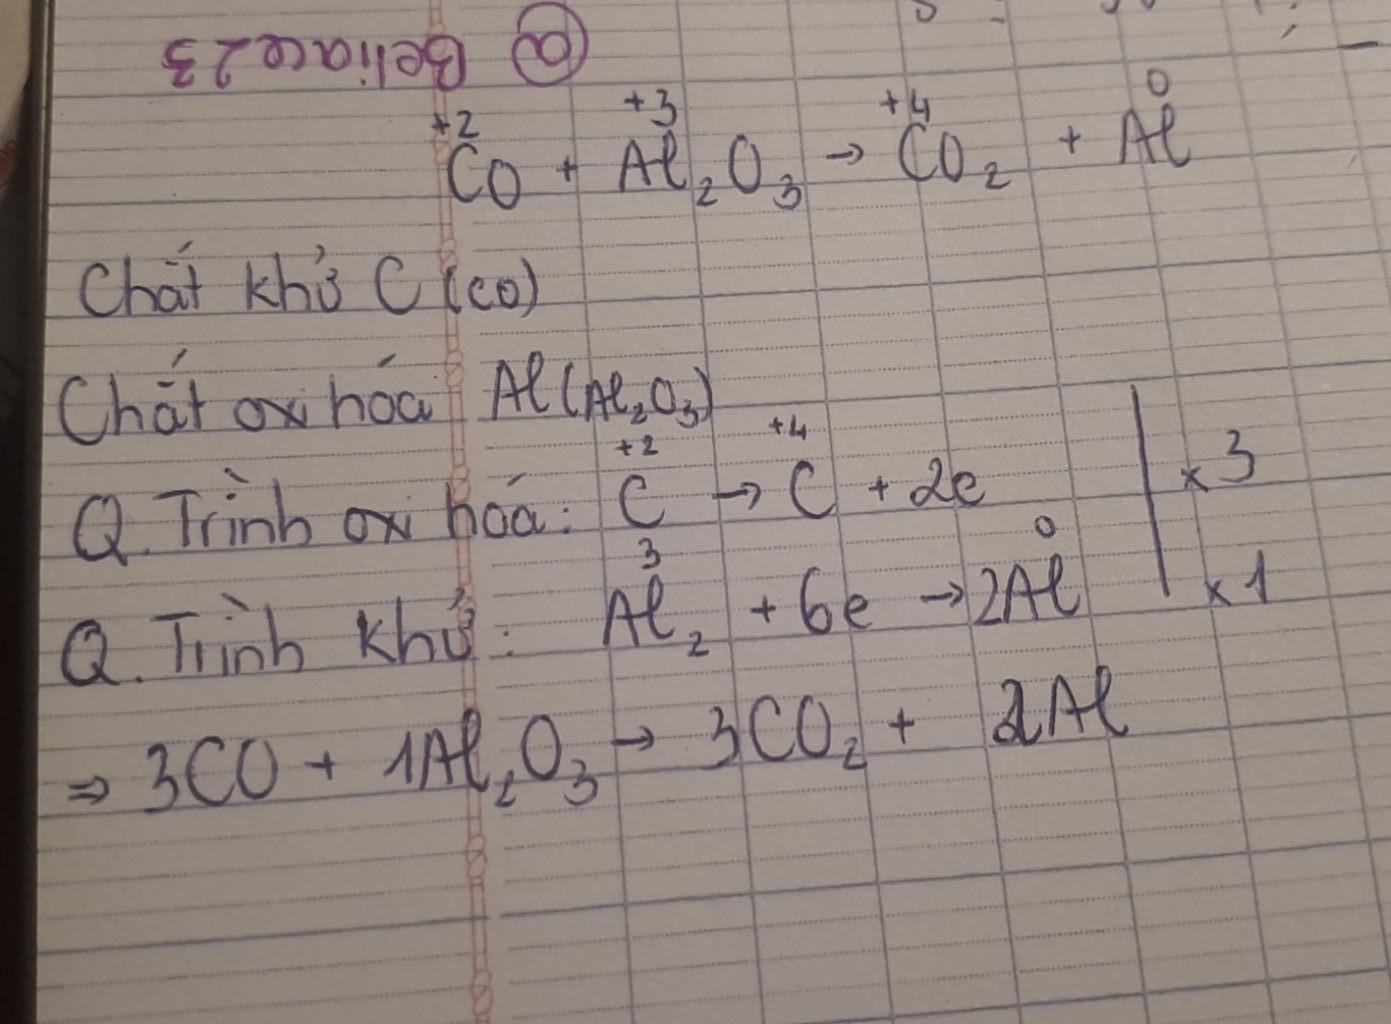 @ Beliace23
+2 +3 +4 0
CO + Al₂O₃ → CO₂ + Al
Chất khử C (CO)
Chất oxi hóa Al (Al₂O₃)
+2 +4
Q. Trình oxi hóa: C → C + 2e x 3
3 0
Q. Trình khử: Al₂ + 6e → 2Al x 1
⇒ 3CO + 1Al₂O₃ → 3CO₂ + 2Al